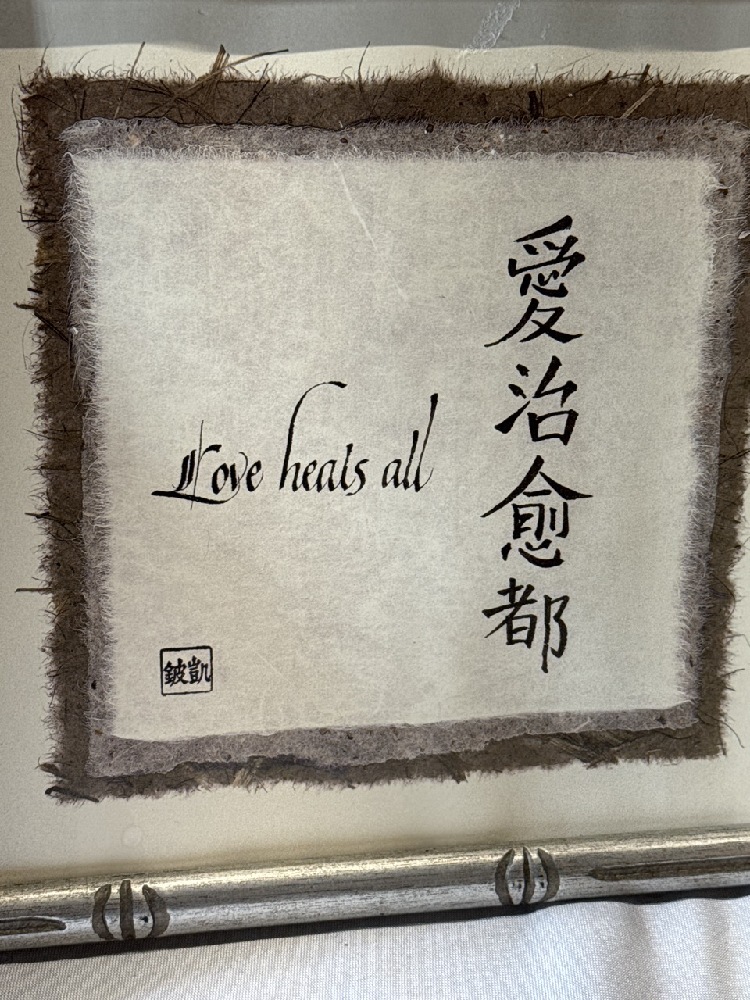 愛治愈都
Love heals all
凱鈹